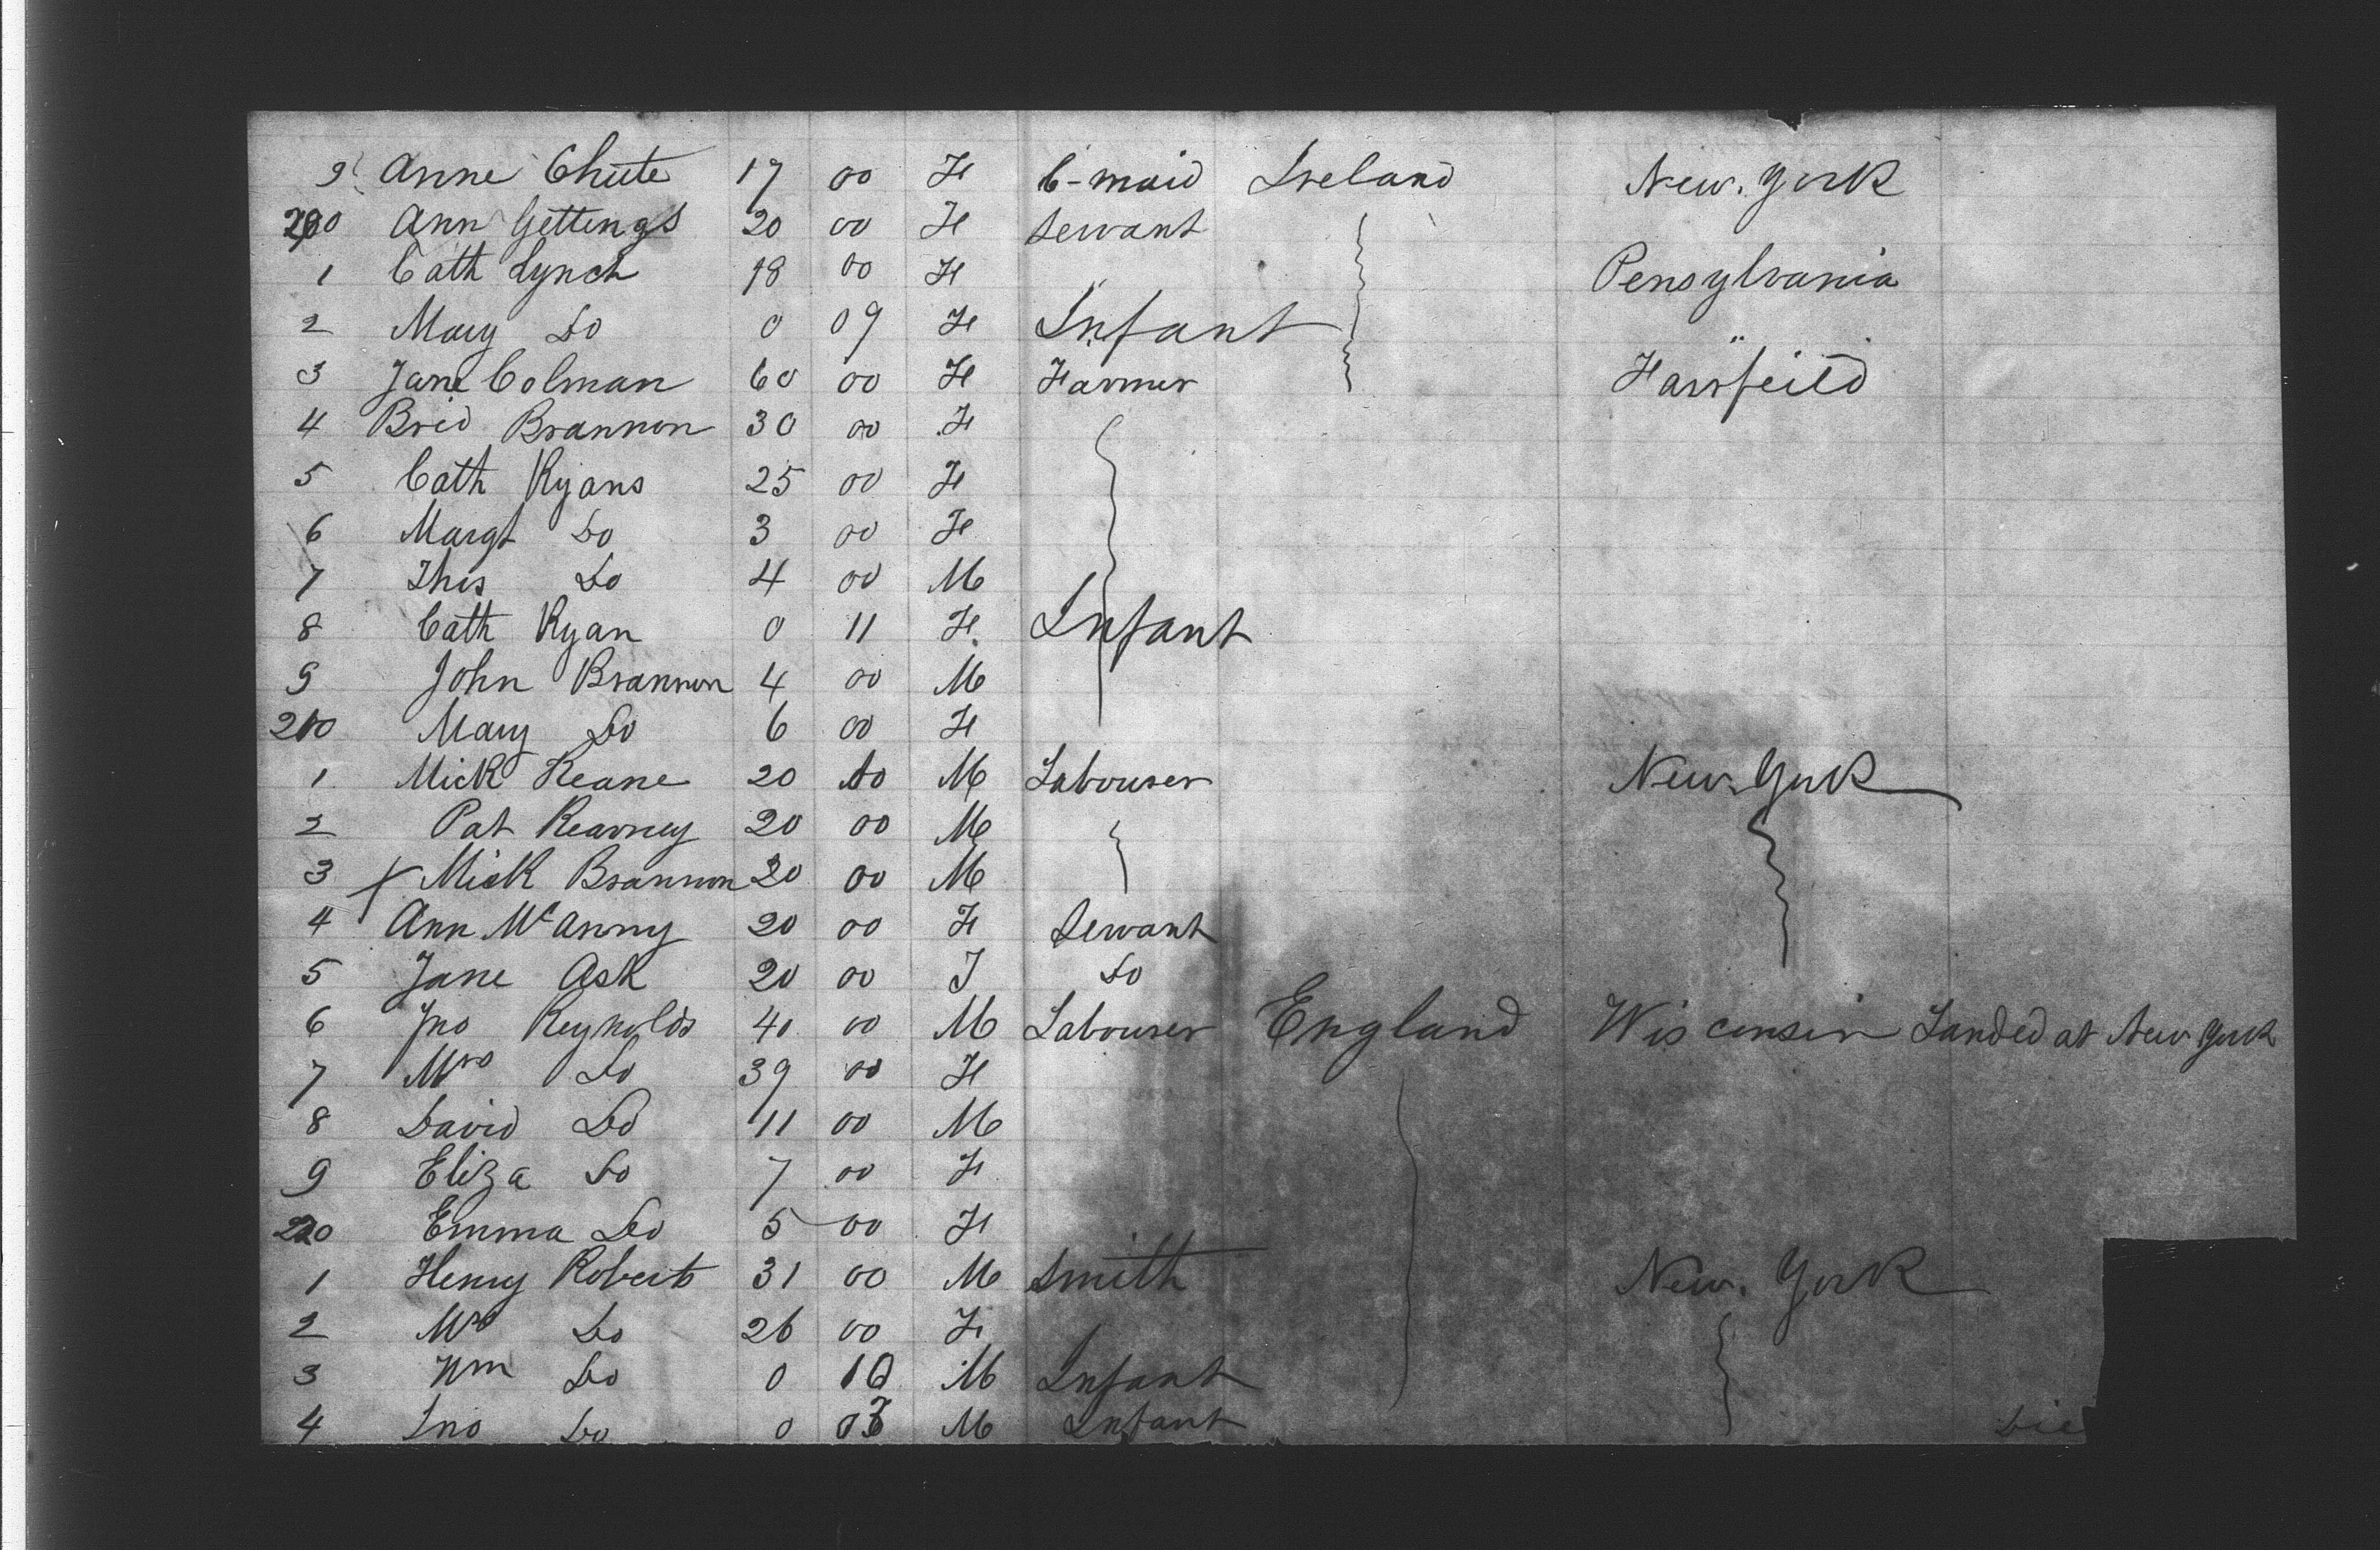 9 Anne Chute 17 00 F C-maid Ireland New. York
200 Ann Gettings 20 00 F Servant
1 Cath Lynch 18 00 F Pensylvania
2 Mary Do 0 09 F Infant "
3 Jane Colman 60 00 F Farmer Fairfeild
4 Brid Brannon 30 00 F
5 Cath Ryans 25 00 F
6 Margt Do 3 00 F
7 Thos Do 4 00 M
8 Cath Ryan 0 11 F Infant
9 John Brannon 4 00 M
210 Mary Do 6 00 F
1 Mick Keane 20 00 M Labourer New York
2 Pat Kearney 20 00 M
3 X Mick Brannon 20 00 M
4 Ann McAnny 20 00 F Servant
5 Jane Ask 20 00 F Do
6 Jno Reynolds 40 00 M Labourer England Wisconsin Landed at New York
7 Mrs Do 39 00 F
8 David Do 11 00 M
9 Eliza Do 7 00 F
220 Emma Do 5 00 F
1 Henry Roberts 31 00 M Smith New. York
2 Mrs Do 26 00 F
3 Wm Do 0 10 M Infant
4 Jno Do 0 03 M Infant Die